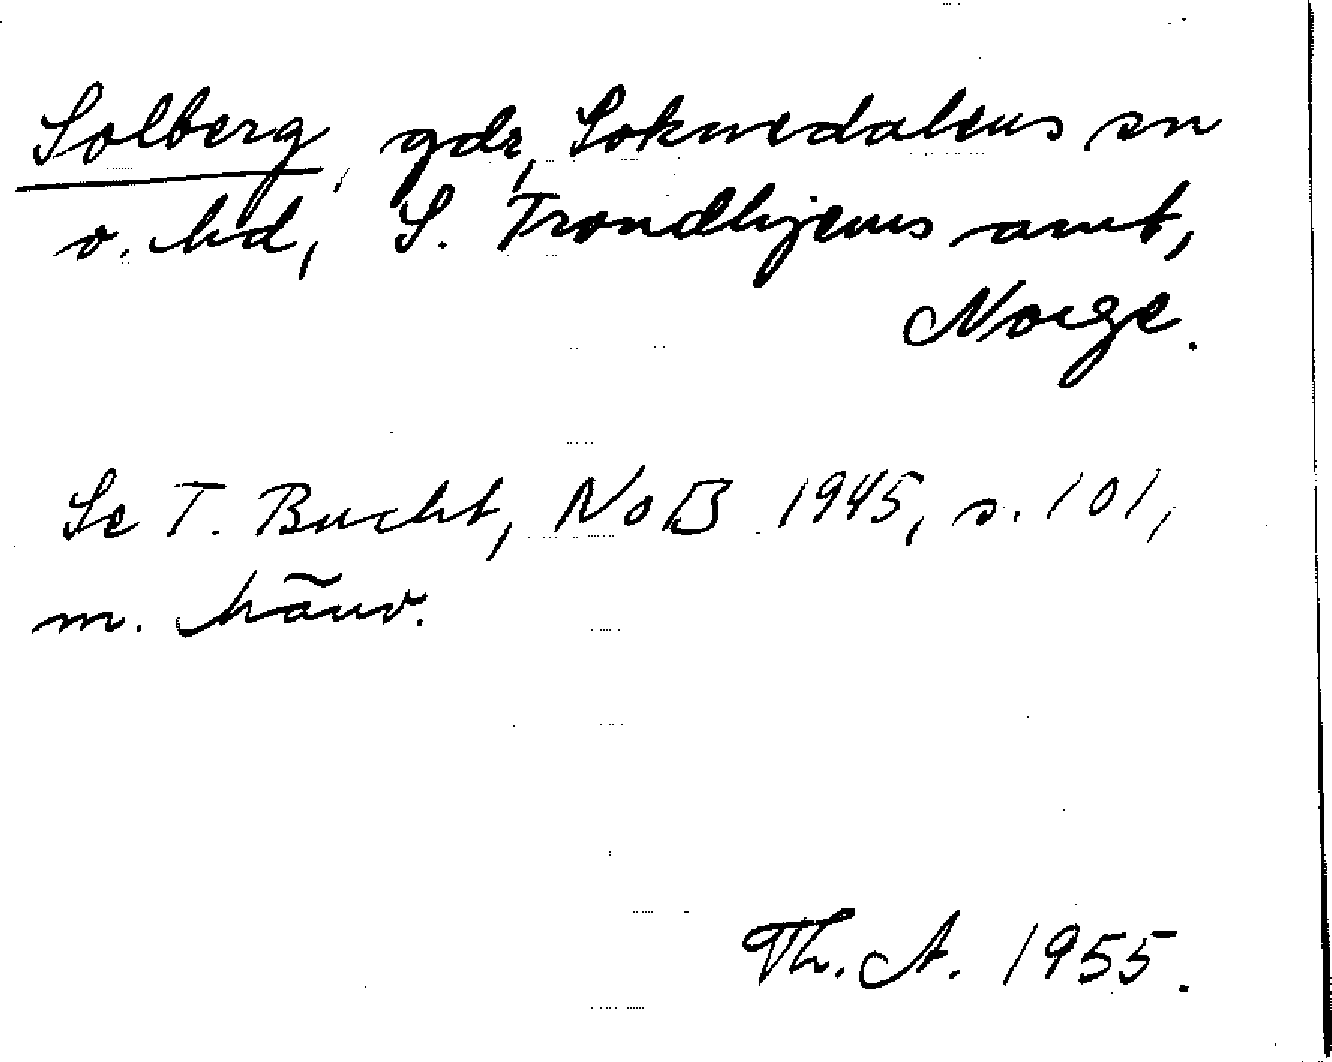 Solberg, gdr, Soknedalens sn
o. hd, S. Trondhjems amt,
Norge.
Se T. Bucht, NoB 1945, s. 101,
m. hänv.
Th. A. 1955.